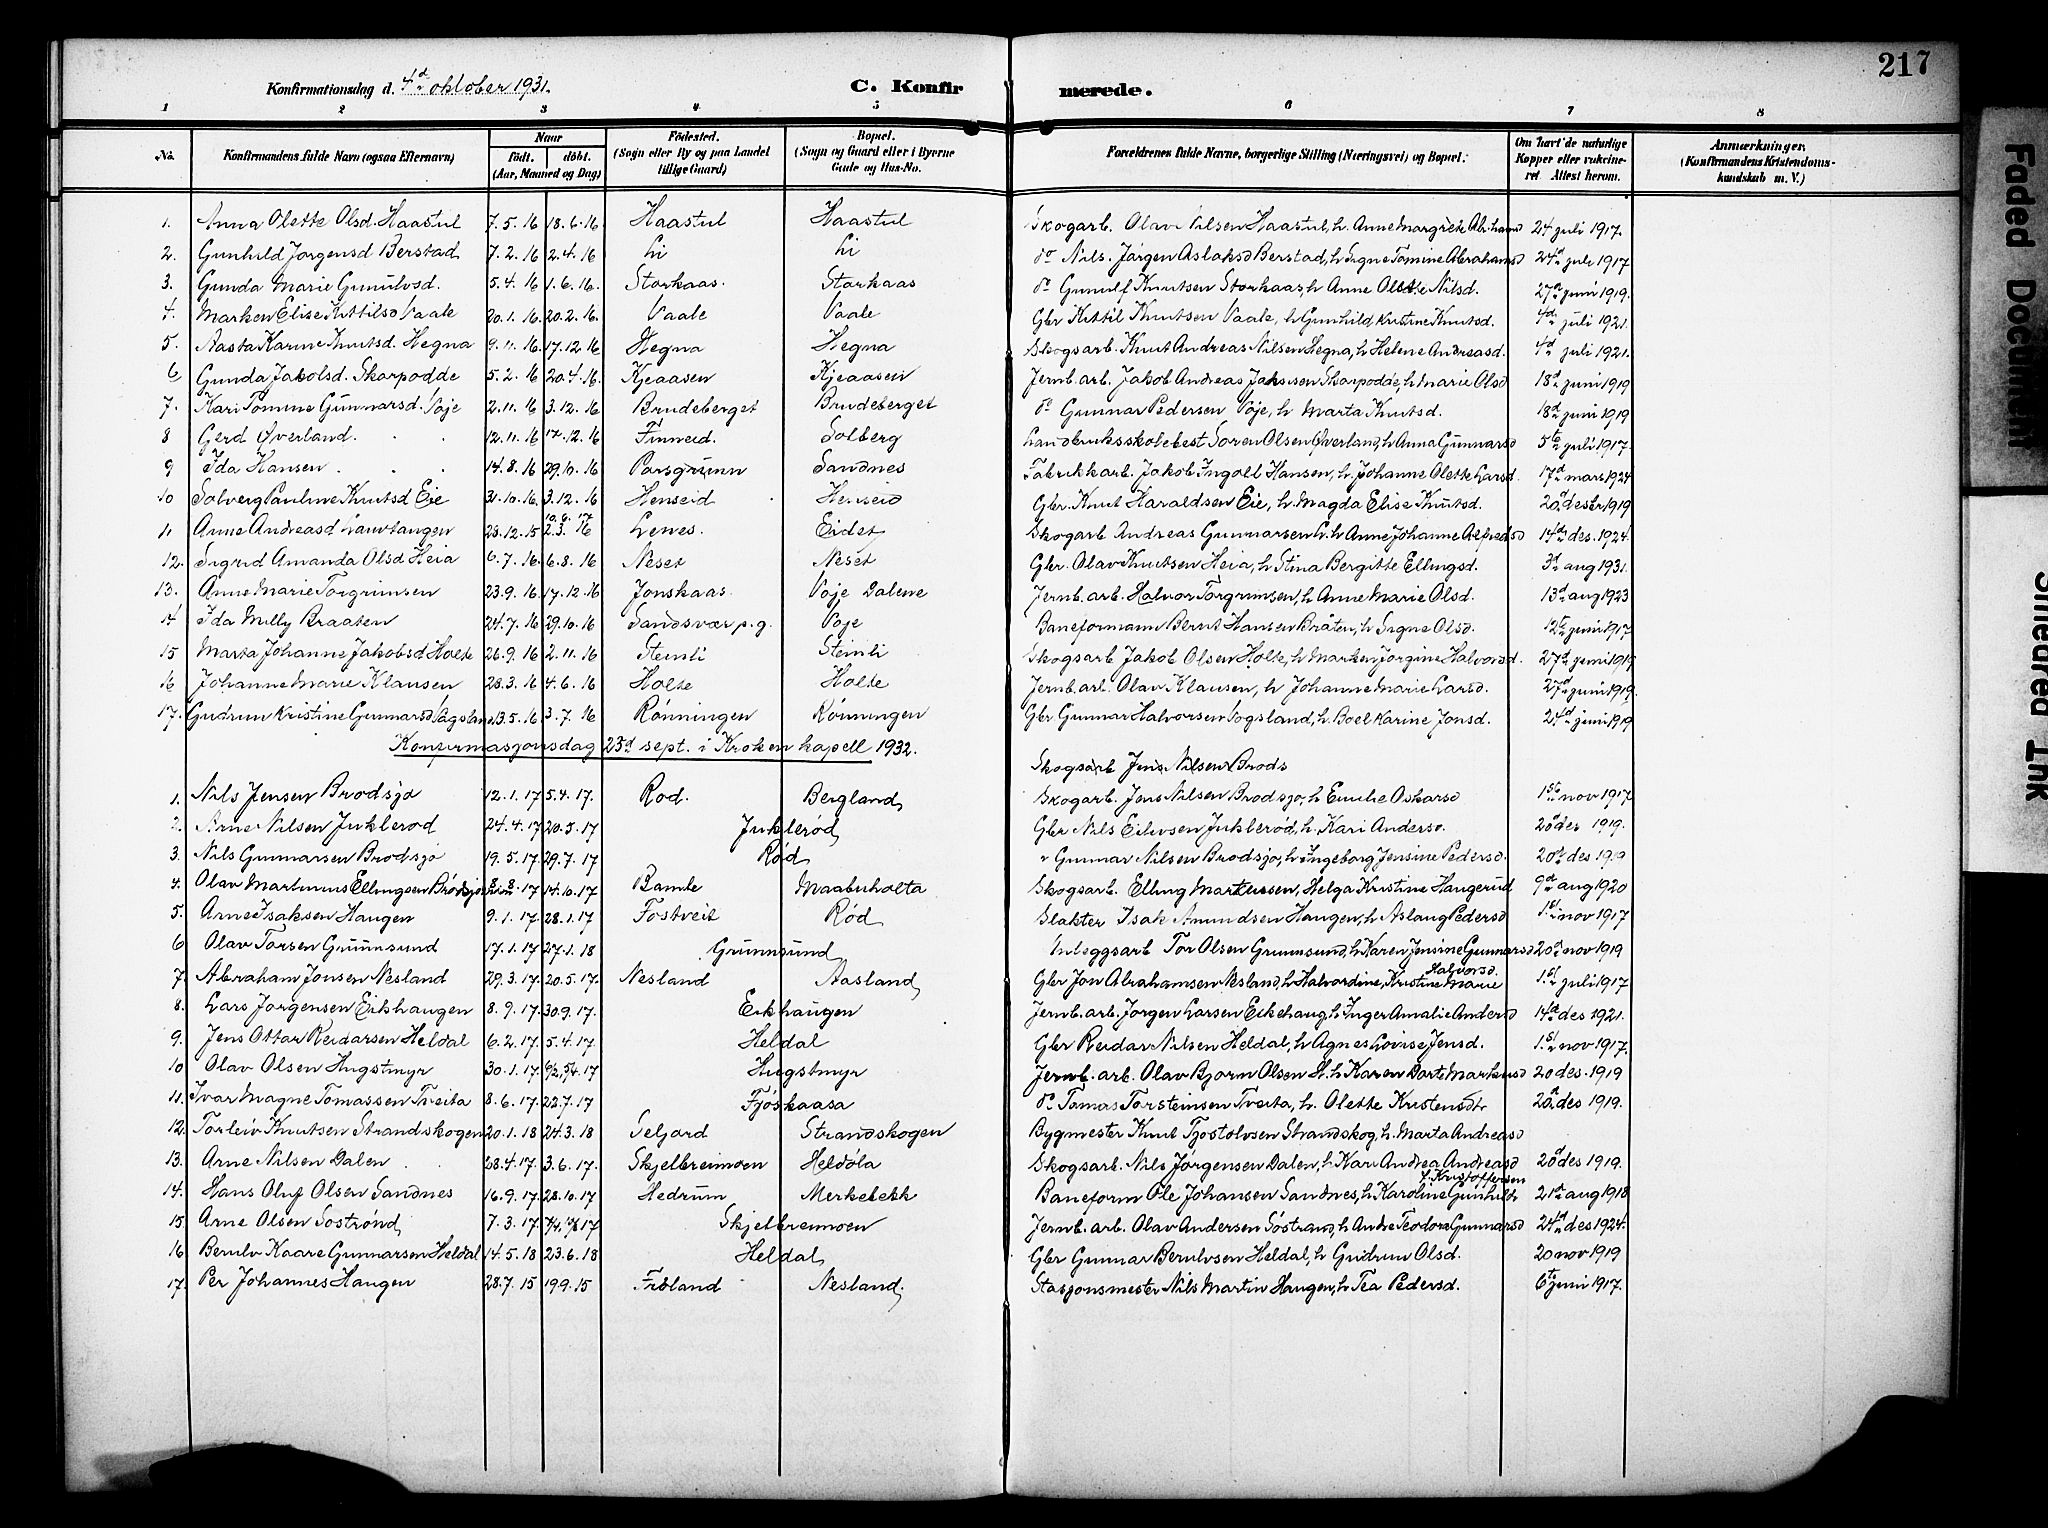 217
Konfirmationsdag d. 4d oktober 1931. C. Konfirmerede.
1 2 3 4 5 6 7 8
No. Konfirmandens fulde Navn (ogsaa Efternavn) Naar født. døbt. (Aar, Maaned og Dag) Fødested. (Sogn eller By og paa Landet tillige Gaard) Bopæl. (Sogn og Gaard eller i Byerne Gade og Hus-No. Forældrenes fulde Navne, borgerlige Stilling (Næringsvei) og Bopæl. Om havt de naturlige Kopper eller vaccineret Attest herom. Anmærkninger. (Konfirmandens Kristendomskundskab m. V.)
1. Anna Olette Olsd. Haastul 7.5.16 18.6.16 Haastul Haastul Skogarb. Olav Nilsen Haastul, h. Anne Margrete Abrahamsd 24 juli 1917.
2. Gunhild Jørgensd Berstad 7.2.16 2.4.16 Li Li do Nils Jørgen Aslaksd Berstad, h. Signe Tomine Abrahamsd 24d juli 1917
3. Gunda Marie Gunulvsd. 5.4.16 1.6.16. Storkaas. Storkaas do Gunulf Knutsen Storkaas, h Anne Olette Nilsd. 27d juni 1919.
4. Marken Elise Kittilsd Vaale 20.1.16 20.2.16. Vaale Vaale Gbr Kittil Knutsen Vaale, h Gunhild Kristine Knutsd. 4d juli 1921.
5. Aasta Karine Knutsd. Hegna 9.11.16 17.12.16 Hegna Hegna Skogsarb. Knut Andreas Nilsen Hegna, h Helene Andreasd. 4d juli 1921.
6 Gunda Jakobsd. Skarpodde 5.2.16 20.4.16. Kjeaasen Kjeaasen Jernb. arb. Jakob Andreas Jakobsen Skarpodde, h Marie Olsd 18d juni 1919
7. Kari Tomine Gunnarsd. Voje 2.11.16 3.12.16 Brudeberget Brudeberget do Gunnar Pedersen Voje, h Marta Knutsd. 18d juni 1919
8 Gerd Øverland. 12.11.16 17.12.16 Finneid. Solberg Landbruksskolebest Søren Olsen Øverland, h Anna Gunnarsd 5te juli 1917.
9 Ida Hansen 14.8.16 29.10.16 Porsgrunn Sandnes Fabrikkarb. Jakob Ingolf Hansen, h. Johanne Olette Larsd. 17d mars 1924
10 Solveig Pauline Knutsd Eie 31.10.16 3.12.16 Henseid Henseid Gbr. Knut Haraldsen Eie, h Magda Elise Knutsd. 20d desbr 1919
11 Anne Andreasd Lauvtangen 28.12.15 2.3.16 Lenes. Eidet Skogarb Andreas Gunnarsen L. h Anne Johanne Alfredsd 14d des. 1924.
12. Sigrid Amanda Olsd Heia 6.7.16 6.8.16 Neset Neset Gbr. Olav Knutsen Heia, h Stina Bergitte Ellingsd. 3d aug 1931.
13. Anne Marie Torgrimsen 23.9.16 17.12.16 Jonskaas. Voje Dalene Jernb. arb. Halvor Torgrimsen, h Anne Marie Olsd. 13d aug 1923
14 Ida Milly Braaten 24.7.16 29.10.16 Sandsvær p.g. Voje Baneformann Bernt Hansen Bråten, h Signe Olsd. 12te juni 1917
15 Marta Johanne Jakobsd Holte 26.9.16 2.11.16 Stemli Stemli Skogsarb Jakob Olsen Holte, h Marken Jørgine Halvorsd. 27d juni 1919
16 Johanne Marie Klausen 28.3.16 4.6.16 Holte Holte Jernb. arb. Olav Klausen, h Johanne Marie Larsd. 27d juni 1919.
17. Gudrun Kristine Gunnarsd Vogsland 13.5.16 3.7.16 Rønningen Rønningen Gbr Gunnar Halvorsen Vogsland, h. Boel Karine Jonsd. 24d juni 1919
Konfirmasjonsdag 25d sept. i Kroken kapell 1932.
Skogsarb Jens Nilsen Brods
1. Nils Jensen Brødsjø 12.1.17 5.4.17. Rød. Bergland Skogarb. Jens Nilsen Brødsjø, h Emilie Oskarsd 1ste nov 1917
2. Arne Nilsen Juklerød 24.4.17 20.5.17 Juklerød Gbr Nils Eilevsen Juklerød, h. Kari Andersd. 20d des 1919.
3. Nils Gunnarsen Brødsjø 19.5.17 29.7.17 Rød " Gunnar Nilsen Brødsjø, h Ingeborg Jensine Pedersd. 20d des 1919
4. Olav Martinius Ellingsen Brødsjø 8.8.17 14.10.17 Bamle Maabuholta Skogsarb. Elling Markussen, Helga Kristine Haugerud 9d aug 1920
5. Arne Isaksen Haugen 9.1.17. 28.1.17 Tostveit Rød Slakter Isak Amundsen Haugen, h Aslaug Pedersd 1ste nov 1917
6 Olav Torsen Grumsund 17.1.17 27.1.18 Grumsund Anleggsarb Tor Olsen Grumsund, h Karen Jensine Gunnarsd 20d nov 1919
7. Abraham Jonsen Nesland 29.3.17 20.5.17 Nesland Aasland Gbr Jon Abrahamsen Nesland, h Halvordine Kristine Marie Halvorsd. 1.st juli 1917
8. Lars Jørgensen Eikhaugen 8.9.17. 30.9.17. Eikhaugen Jernb. arb. Jørgen Larsen Eikehaug, h. Inger Amalie Andersd 14d des 1921.
9. Jens Ottar Reidarsen Heldal 6.2.17. 5.4.17 Heldal Gbr Reidar Nilsen Heldal, h Agnes Lovise Jensd. 1.st nov 1917.
10 Olav Olsen Hugstmyr 30.1.17. Hugstmyr Jernb. arb. Olav Bjørn Olsen H. h Karen Dorte Markusd 20 des. 1919
11. Ivar Magne Tomassen Tveita 8.6.17 22.7.17 Fjøskaasa do Tomas Torsteinsen Tveita, h. Olette Kristensdtr 20d des 1919.
12. Torleiv Knutsen Strandskogen 20.1.18 24.3.18 Seljord Strandskogen Bygmester Knut Tjostolvsen Strandskog, h. Marta Andreasd
13. Arne Nilsen Dalen 28.4.17. 3.6.17. Skjelbreimoen Heldøla Skogsarb. Nils Jørgensen Dalen, h Kari Andrea Andreasd 20d des 1919.
14. Hans Oluf Olsen Sandnes 16.9.17 28.10.17 Hedrum Merkebekk Baneform Ole Johansen Sandnes, h Karoline Gunhild f. Kristoffersen 21st aug 1918
15. Arne Olsen Sostrønd 7.3.17. Skjelbreimoen Jernb. arb. Olav Andersen Søstrand, h Andre Teodora Gunnarsd 24d des 1924.
16 Bernlv Kaare Gunnarsen Heldal 14.5.18 23.6.18 Heldal Gbr Gunnar Bernlvsen Heldal, h Gudrun Olsd. 20 nov 1919
17. Per Johannes Haugen 28.7.15 19.9.15 Frøland Nesland. Stasjonsmester Nils Martin Haugen, h Tea Pedersd. 6te juni 1917.
Faded Document
Smeared Ink